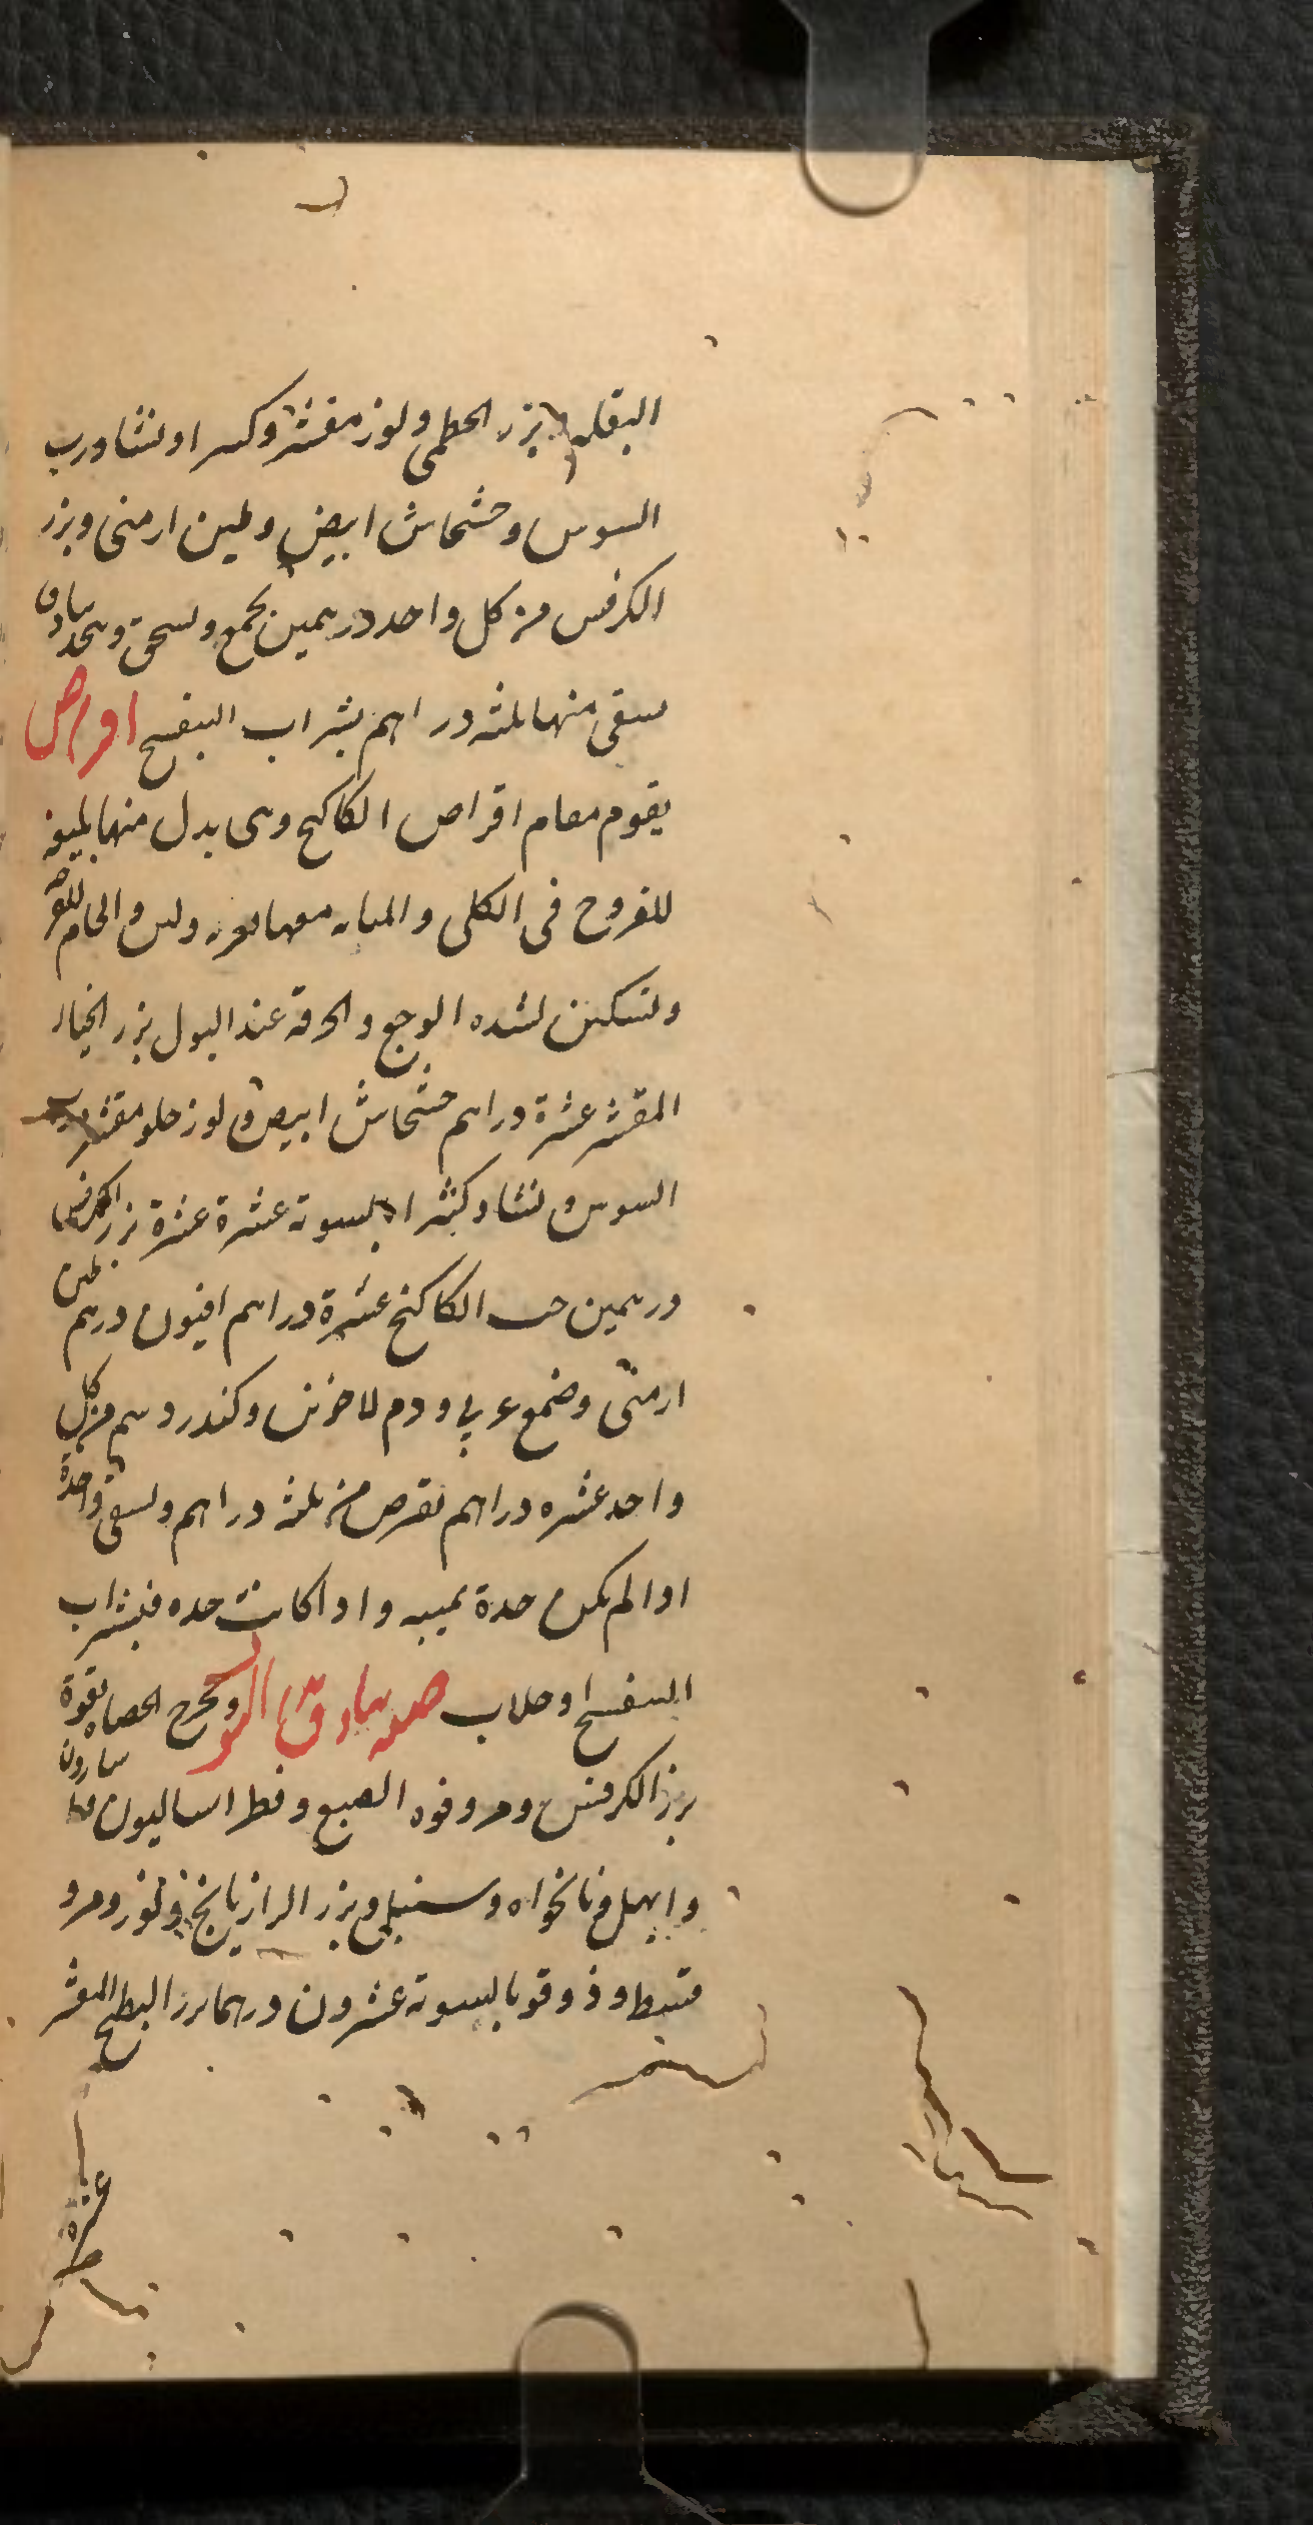 البقله بزر الخطمى ولوز مقشر وكسرا ونشا ورب
السوس وخشخاش ابيض وطين ارمنى وبزر
الكرفس من كل واحد درهمين يجمع ويسحق وىتخد بنادق
يسقى منها ثلثه دراهم بشراب البنفسج اقراص
يقوم مقام اقراص الكاكنج وهى بدل منها
للقروح فى الكلى والمثانه
وتسكين لشده الوجع والحرقة عند البول بزر الخيار
المقشر عشرة دراهم خشخاش ابيض ولوز حلو مقشر ورب
السوس ونشا وكثيرا بالسوية عشرة عشرة بزر الكرفس
درهمين حب الكاكنج عشرة دراهم افيون درهم طين
ارمنى وصمغ عربى ودم الاخوين وكندر من كل
واحد عشره دراهم يقرص من ثلثه دراهم ويسقى واحدة
اذا لم يكن حدة بميبه واذا كانت حده فبشراب
البنفسج او جلاب صفه بنادق البول ويخرج الحصا بقوة
بزر الكرفس ومر وفوه الصبغ وفطراساليون
وابهل ونانخواه وسنبل وبزر الرازيانج ولوز ومر و
قسط وذوقو بالسوية عشرون درهما بزر البطيخ المقشر
عشرة